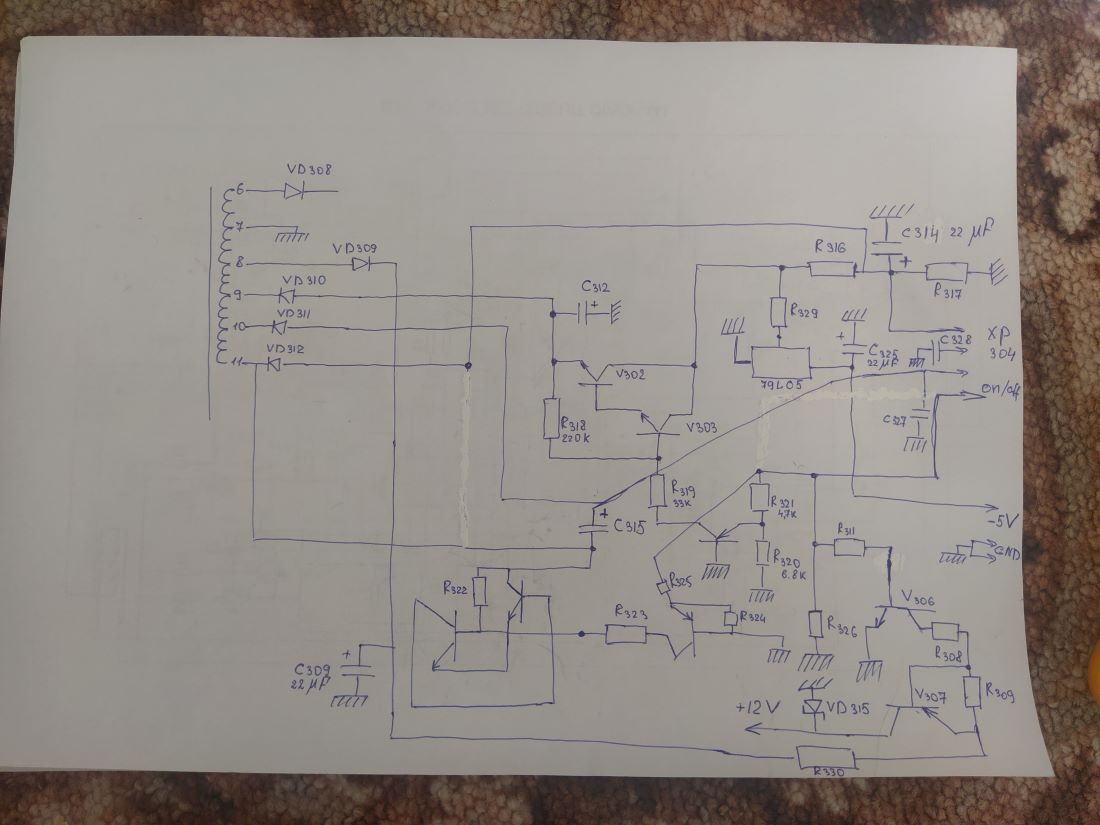 VD308
6
7
VD309
8
VD310
9
VD311
10
VD312
11
C312
+
V302
R318
220K
V303
R319
33K
+
C315
R316
C314 22 µF
+
R317
R329
79L05
+
C325
22 µF
XP
304
C328
on/off
C327
R321
4,7K
R320
6.8K
-5V
GND
R311
R325
R324
R322
R323
R326
V306
R308
V307
R309
+
C309
22 µF
+12V
VD315
R330